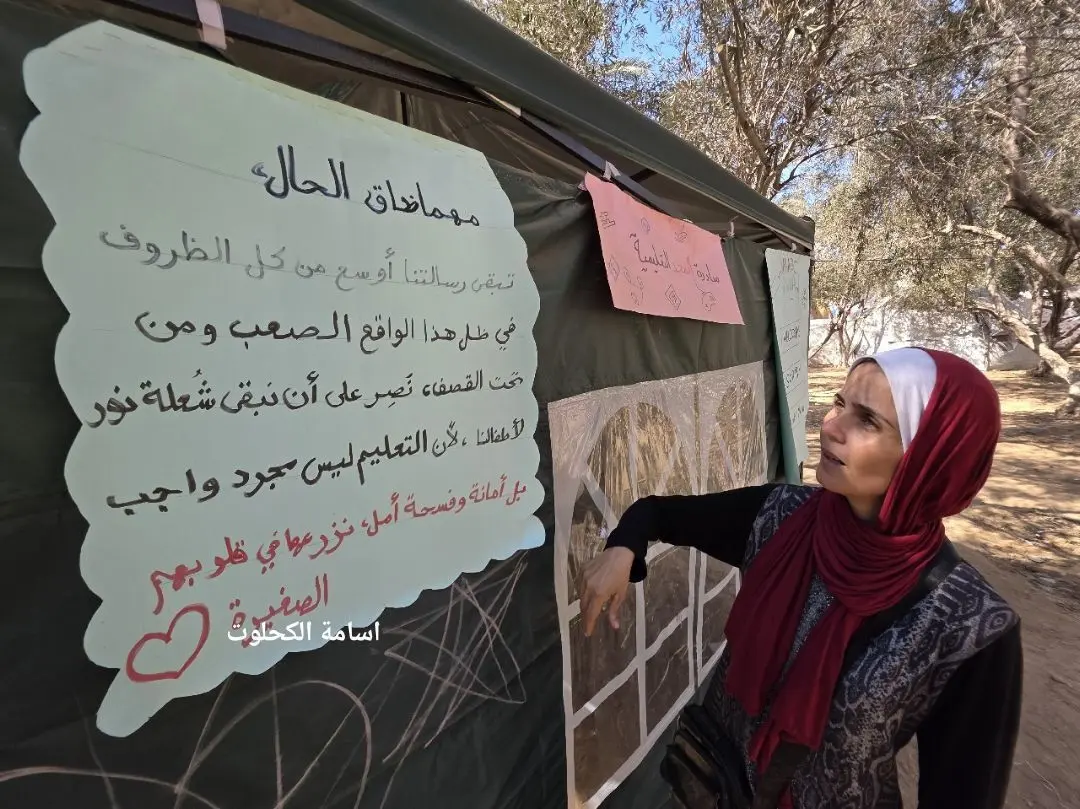 مهما ضاق الحال،
تبقى رسالتنا أوسع من كل الظروف
في ظل هذا الواقع الصعب ومن
تحت القصف، نَصِر على أن نبقى شُعلة نور
لأطفالنا، لأن التعليم ليس مجرد واجب
بل أمانة وفسحة أمل، نزرعها في قلوبهم
الصغيرة
اسامة الكحلوت
مبادرة التعليمية